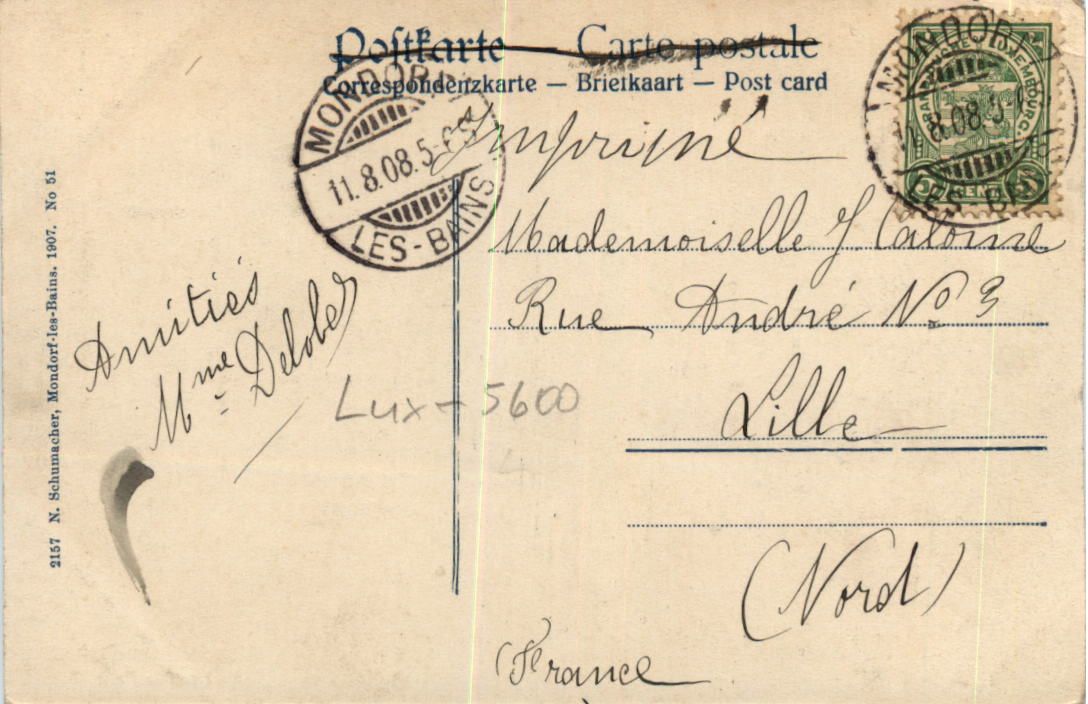 Postkarte — Carte postale
Correspondenzkarte — Briefkaart — Post card
MONDORF
11.8.08.5-6S
LES-BAINS
MONDORF
11.8.08.5
LES-BAINS
LUXEMBOURG
Imprimé
Mademoiselle J.
Rue André No 3
Lille
(Nord)
(France
Amitiés
Mme Delobel
Lux - 5600
4
2157 N. Schumacher, Mondorf-les-Bains. 1907. No 51